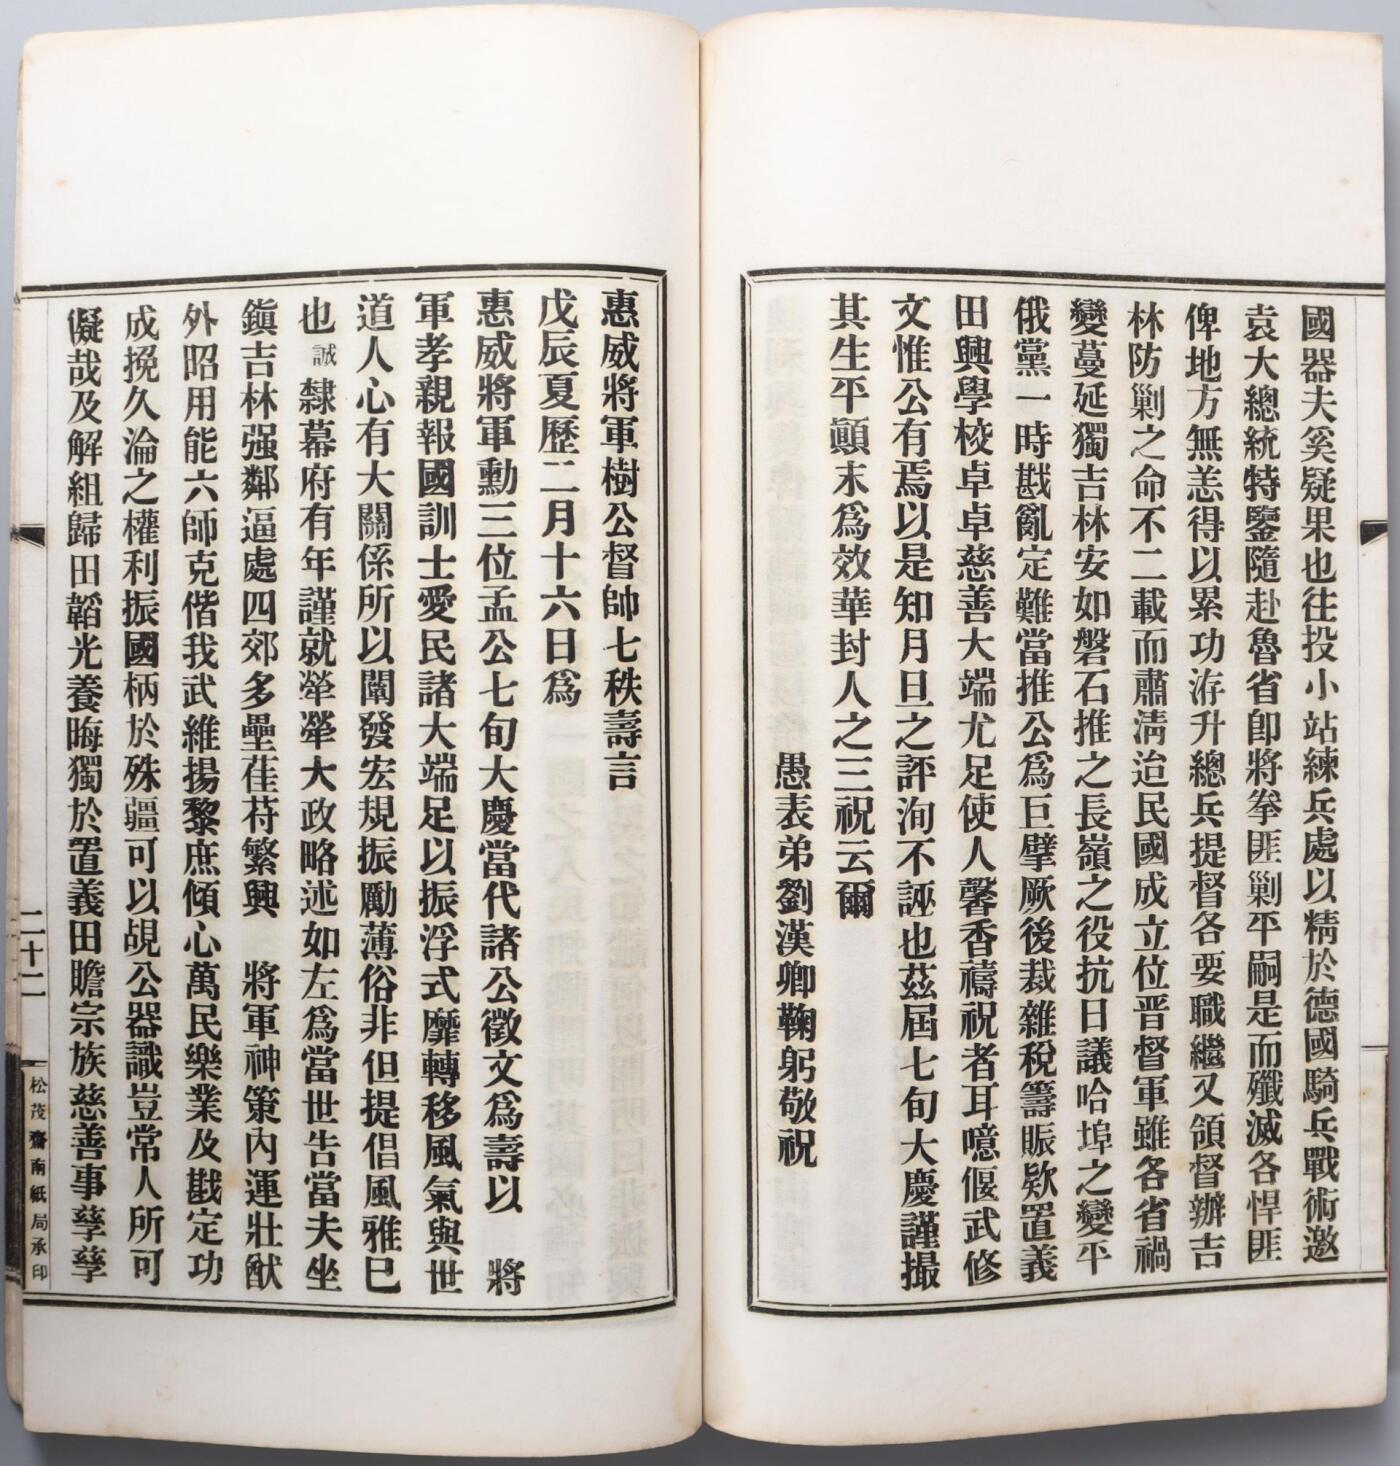 國器夫奚疑果也往投小站練兵處以精於德國騎兵戰術邀
袁大總統特鑒隨赴魯省卽將拳匪剿平嗣是而殲滅各悍匪
俾地方無恙得以累功洊升總兵提督各要職繼又領督辦吉
林防剿之命不二載而肅淸迨民國成立位晋督軍雖各省禍
變蔓延獨吉林安如磐石推之長嶺之役抗日議哈埠之變平
俄黨一時戡亂定難當推公爲巨擘厥後裁雜稅籌賑欵置義
田興學校卓卓慈善大端尤足使人馨香禱祝者耳噫偃武修
文惟公有焉以是知月旦之評洵不誣也茲屆七旬大慶謹撮
其生平顚末爲效華封人之三祝云爾
愚表弟劉漢卿鞠躬敬祝
惠威將軍樹公督帥七秩壽言
戊辰夏歷二月十六日爲
惠威將軍勳三位孟公七旬大慶當代諸公徵文爲壽以 將
軍孝親報國訓士愛民諸大端足以振浮式靡轉移風氣與世
道人心有大關係所以闡發宏規振勵薄俗非但提倡風雅巳
也誠隸幕府有年謹就犖犖大政略述如左爲當世告當夫坐
鎭吉林强鄰逼處四郊多壘萑苻繁興 將軍神策內運壯猷
外昭用能六師克偕我武維揚黎庶傾心萬民樂業及戡定功
成挽久淪之權利振國柄於殊疆可以覘公器識豈常人所可
儗哉及解組歸田韜光養晦獨於置義田贍宗族慈善事孳孳
二十二
松茂齋南紙局承印